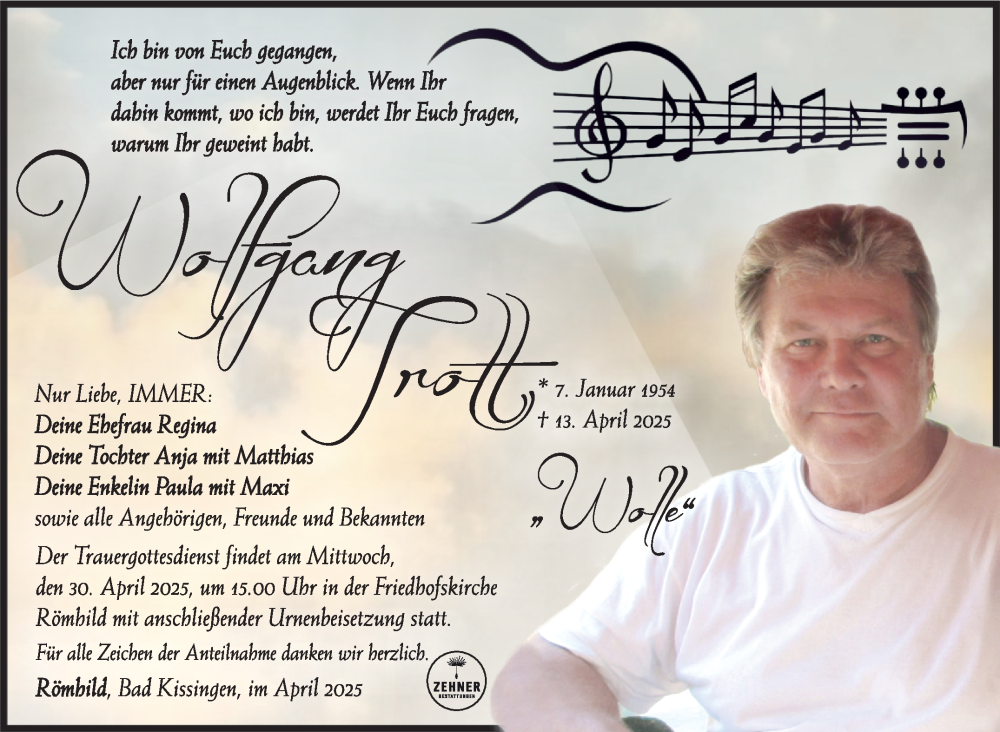 Ich bin von Euch gegangen,
aber nur für einen Augenblick. Wenn Ihr
dahin kommt, wo ich bin, werdet Ihr Euch fragen,
warum Ihr geweint habt.
Wolfgang
Trott
* 7. Januar 1954
† 13. April 2025
„Wolle“
Nur Liebe, IMMER:
Deine Ehefrau Regina
Deine Tochter Anja mit Matthias
Deine Enkelin Paula mit Maxi
sowie alle Angehörigen, Freunde und Bekannten
Der Trauergottesdienst findet am Mittwoch,
den 30. April 2025, um 15.00 Uhr in der Friedhofskirche
Römhild mit anschließender Urnenbeisetzung statt.
Für alle Zeichen der Anteilnahme danken wir herzlich.
Römhild, Bad Kissingen, im April 2025
ZEHNER
BESTATTUNGEN